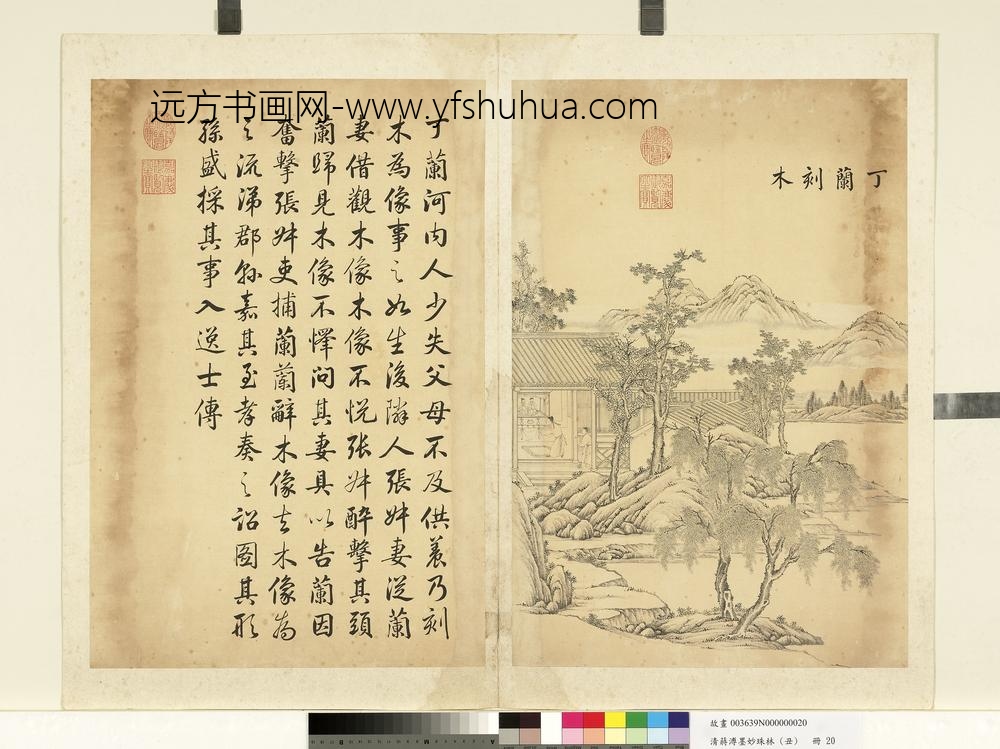 远方书画网-www.yfshuhua.com
丁蘭刻木
丁蘭河内人少失父母不及供養乃刻
木為像事之如生後隣人張叔妻從蘭
妻借觀木像木像不悅張叔醉擊其頭
蘭歸見木像不懌問其妻具以告蘭因
奮擊張叔吏捕蘭蘭辭木像去木像為
之流涕郡縣嘉其至孝奏之詔圖其形
孫盛採其事入逸士傳
故畫 003639N000000020
清蔣溥墨妙珠林（丑） 冊 20